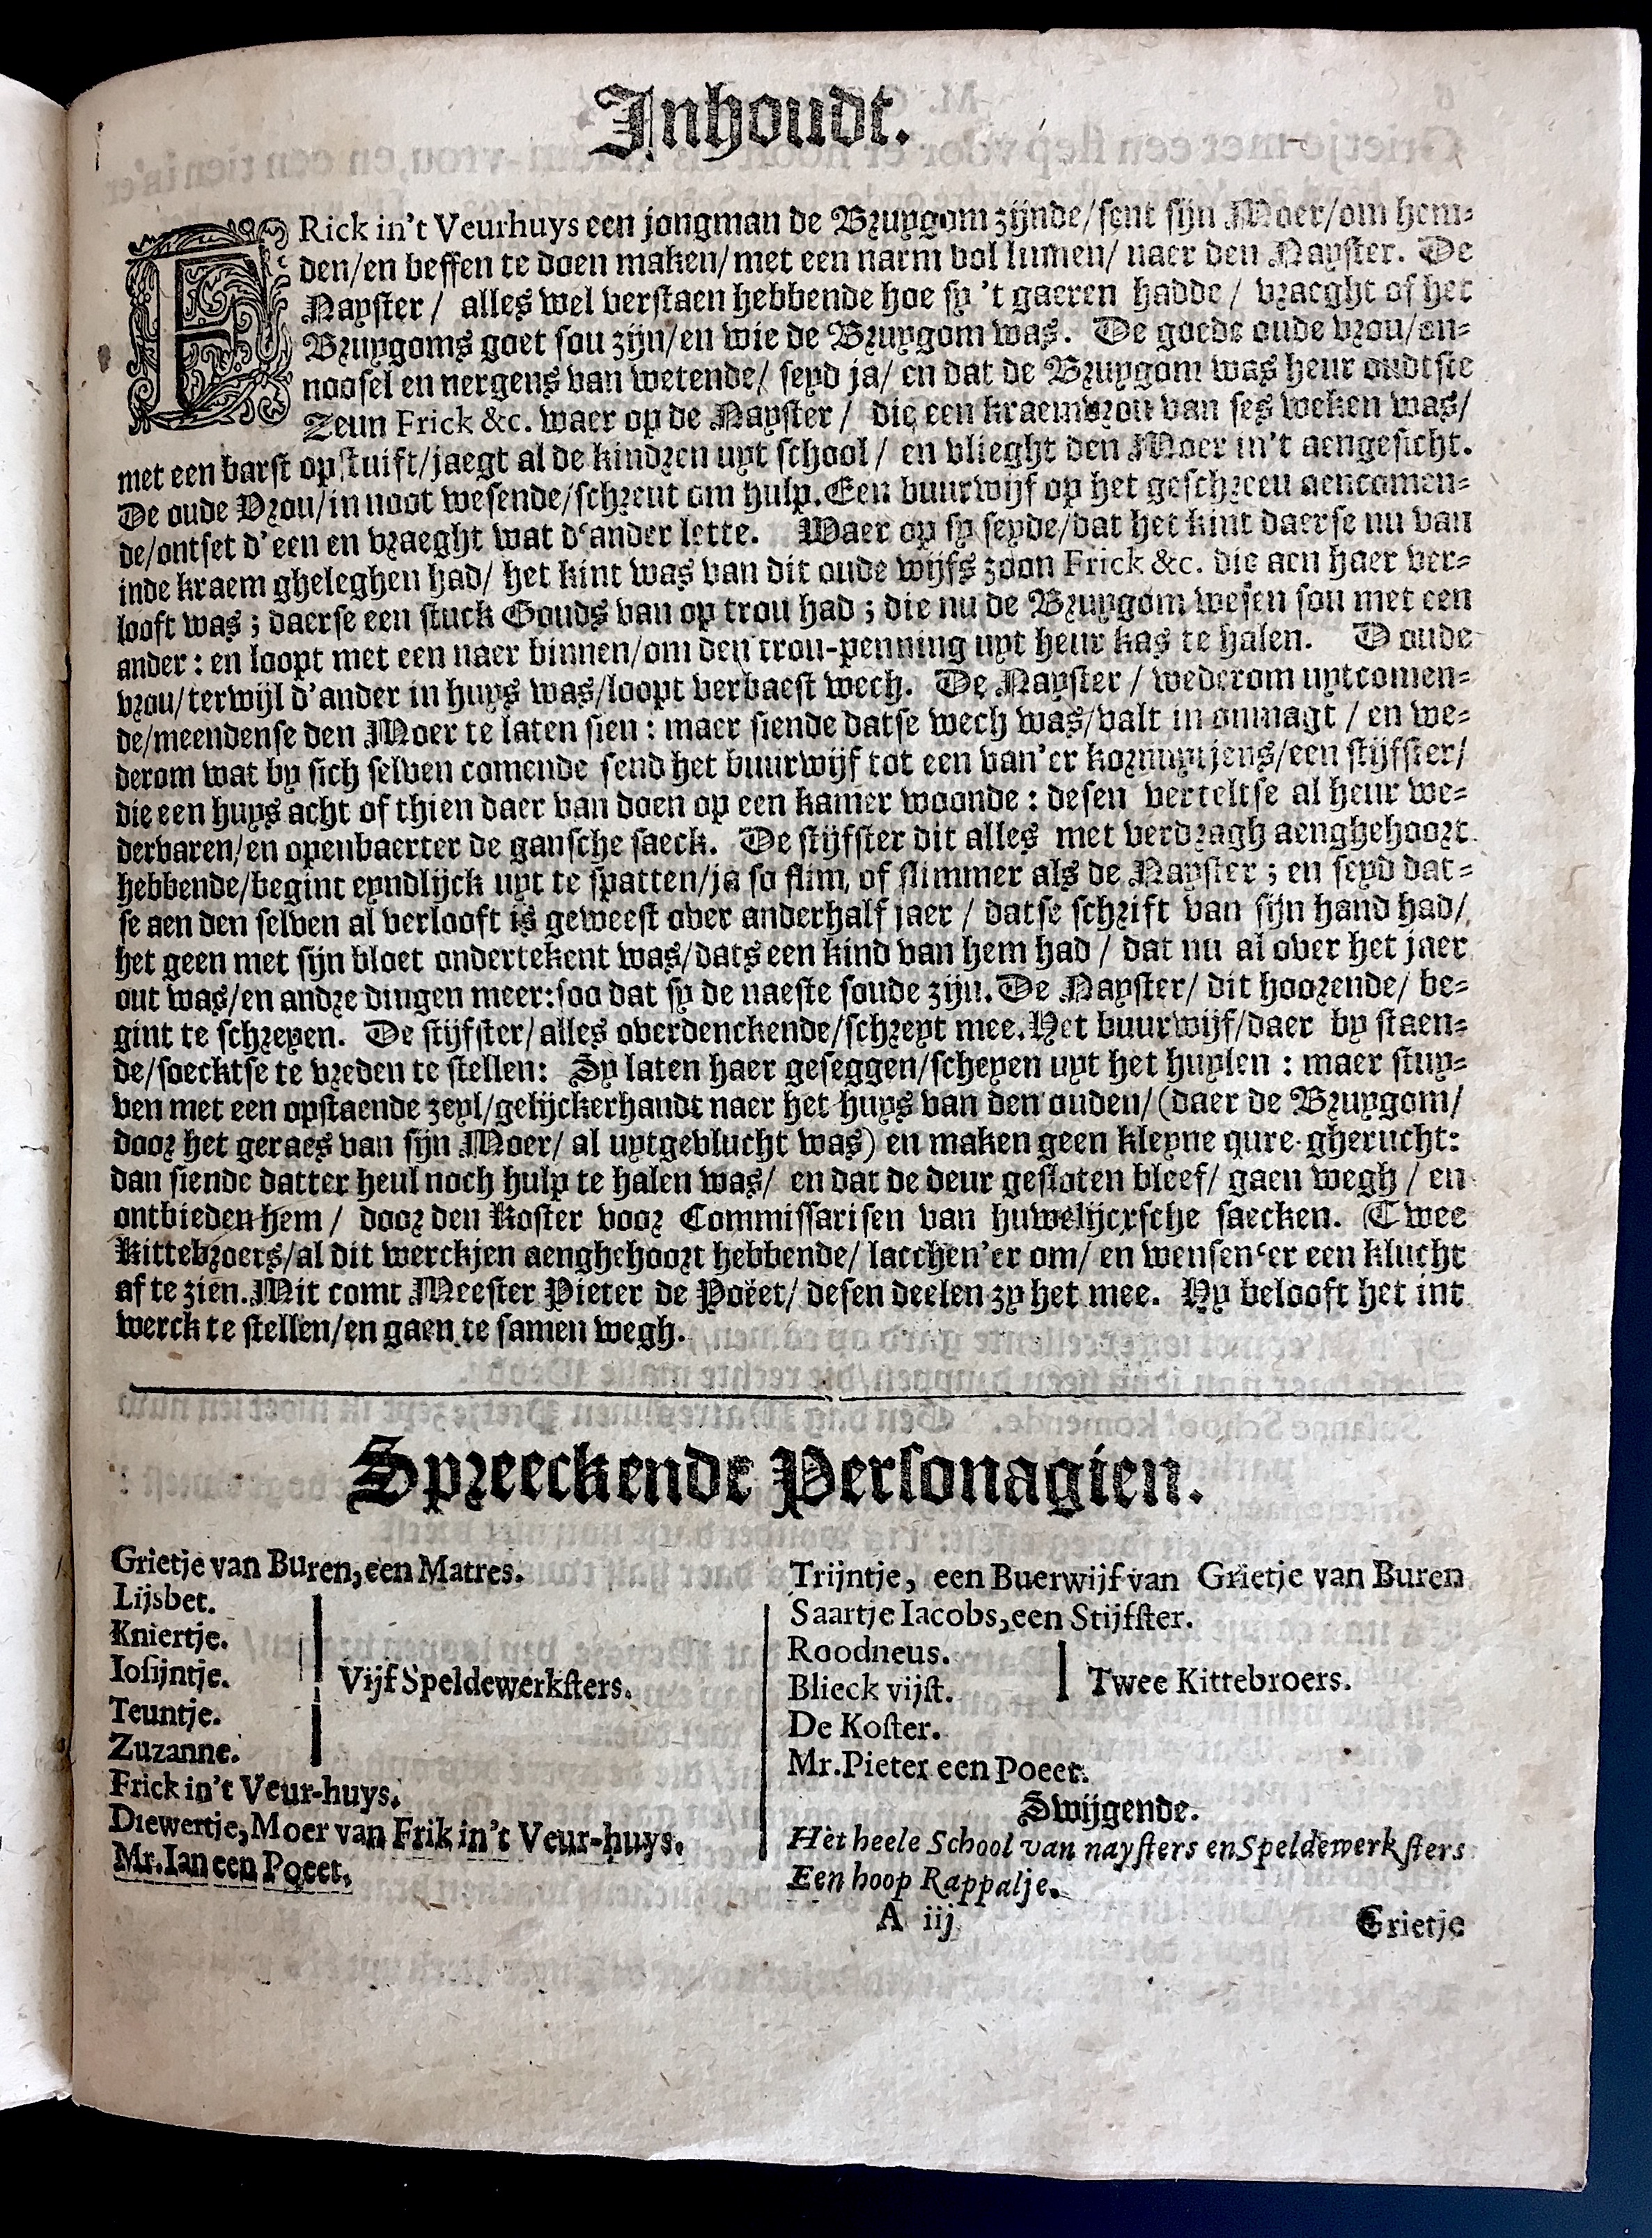 Inhoudt.
FRick in't Veurhuys een jongman de Bruygom zijnde/sent sijn Moer/om hem-
den/en beffen te doen maken/met een narm vol lumen/ naer den Nayster. De
Nayster / alles wel verstaen hebbende hoe sy 't gaeren hadde / vraeght of het
Bruygoms goet sou zijn/en wie de Bruygom was. De goede oude vrou/on-
noosel en nergens van wetende/ seyd ja/ en dat de Bruygom was heur oudtste
Zeun Frick &c. waer op de Nayster / die een kraemvrou van ses weken was/
met een barst opstuift/jaegt al de kindren uyt school / en vlieght den Moer in't aengesicht.
De oude Vrou/in noot wesende/schreut om hulp. Een buurwijf op het geschreeu aencomen-
de/ontset d'een en vraeght wat d'ander lette. Waer op sy seyde/dat het kint daerse nu van
inde kraem gheleghen had/ het kint was van dit oude wijfs zoon Frick &c. die aen haer ver-
looft was ; daerse een stuck Gouds van op trou had ; die nu de Bruygom wesen sou met een
ander : en loopt met een naer binnen/om den trou-penning uyt heur kas te halen. D oude
vrou/terwijl d'ander in huys was/loopt verbaest wech. De Nayster / wederom uytcomen-
de/meendense den Moer te laten sien : maer siende datse wech was/valt in onmagt / en we-
derom wat by sich selven comende send het buurwijf tot een van'er kornuytjens/een stijfster/
die een huys acht of thien daer van doen op een kamer woonde : desen verteltse al heur we-
dervaren/en openbaerter de gansche saeck. De stijfster dit alles met verdragh aenghehoort
hebbende/begint eyndlijck uyt te spatten/ja so slim, of slimmer als de Nayster ; en seyd dat-
se aen den selven al verlooft is geweest over anderhalf jaer / datse schrift van sijn hand had/
het geen met sijn bloet ondertekent was/dats een kind van hem had / dat nu al over het jaer
out was/en andre dingen meer: soo dat sy de naeste soude zijn. De Nayster/ dit hoorende/ be-
gint te schreyen. De stijfster/ alles overdenckende/schreyt mee. Het buurwijf/daer by staen-
de/soecktse te vreden te stellen: Sy laten haer geseggen/scheyen uyt het huylen : maer stuy-
ven met een opstaende zeyl/gelijckerhandt naer het huys van den ouden/ (daer de Bruygom/
door het geraes van sijn Moer/ al uytgevlucht was) en maken geen kleyne qure gherucht:
dan siende datter heul noch hulp te halen was/ en dat de deur gesloten bleef/ gaen wegh / en
ontbieden hem / door den Koster voor Commissarisen van huwelijcrsche saecken. (Twee
Kittebroers/al dit werckjen aenghehoort hebbende/ lacchen'er om/ en wensen'er een klucht
af te zien. Mit comt Meester Pieter de Poëet/ desen deelen zy het mee. Hy belooft het int
werck te stellen/en gaen te samen wegh.
Spreeckende Personagien.
Grietje van Buren, een Matres.
Lijsbet.
Kniertje.
Iosijntje.
Vijf Speldewerksters.
Teuntje.
Zuzanne.
Frick in't Veur-huys.
Diewertje, Moer van Frik in't Veur-huys.
Mr. Ian een Poeet.
Trijntje, een Buerwijf van Grietje van Buren
Saartje Iacobs, een Stijfster.
Roodneus.
Blieck vijst.
Twee Kittebroers.
De Koster.
Mr. Pieter een Poeet.
Swijgende.
Het heele School van naysters en Speldewerksters
Een hoop Rappalje.
A iij
Grietje